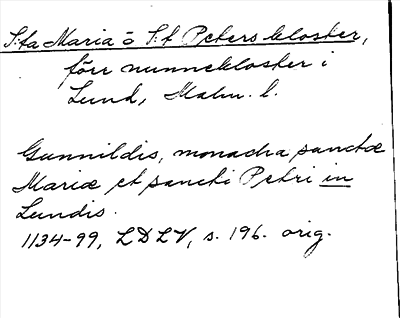 S:ta Maria o S:t Peters kloster,
förr nunnekloster i
Lund, Malm. l.
Gunnildis, monacha sanctæ
Mariæ et sancti Petri in
Lundis.
1134-99, LDLV, s. 196. orig.